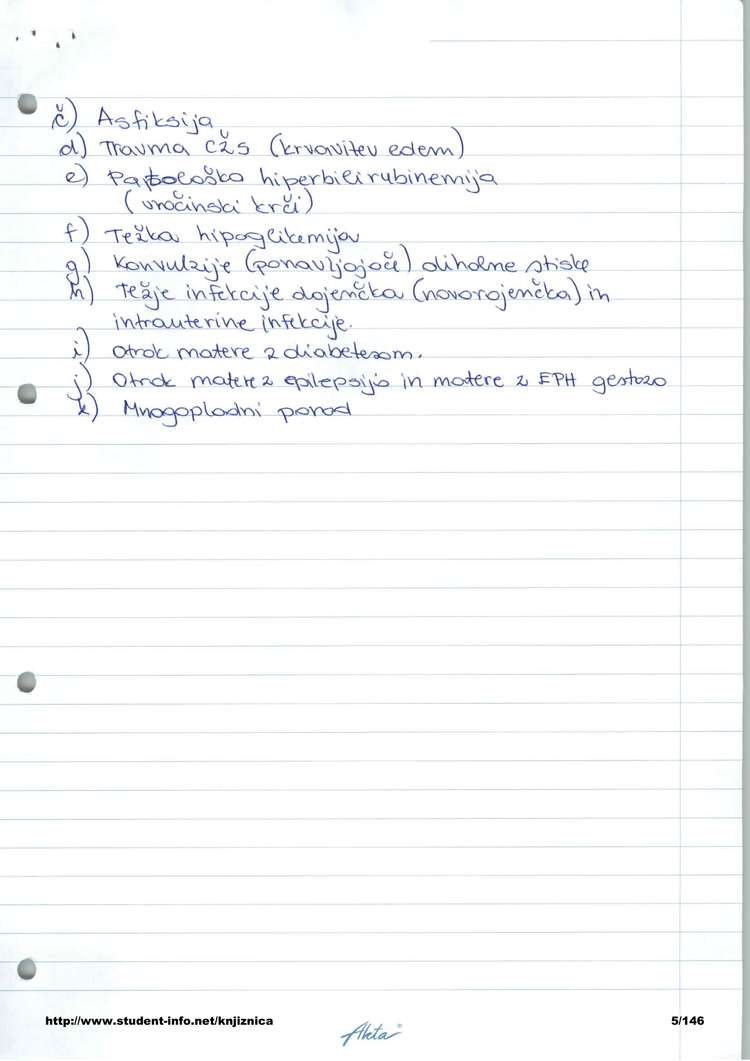 č) Asfiksija
d) Travma CŽS (krvavitev edem)
e) Patološka hiperbilirubinemija
(vročinski krči)
f) Težka hipoglikemija
g) Konvulzije (ponavljajoče) dihalne stiske
h) Težje infekcije dojenčka (novorojenčka) in
intrauterine infekcije.
i) Otrok matere z diabetesom.
j) Otrok matere z epilepsijo in matere z EPH gestozo
k) Mnogoplodni porod
http://www.student-info.net/knjiznica
5/146
Akta